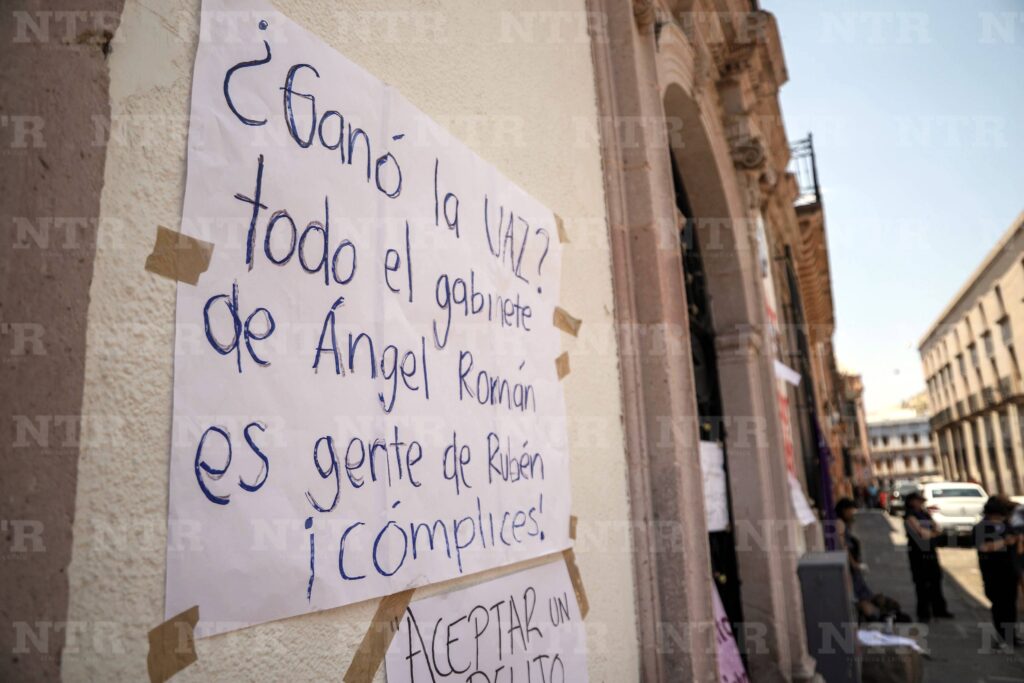 ¿Ganó la UAZ?
todo el gabinete
de Ángel Román
es gente de Rubén
¡cómplices!
"ACEPTAR UN
DELITO
NTR